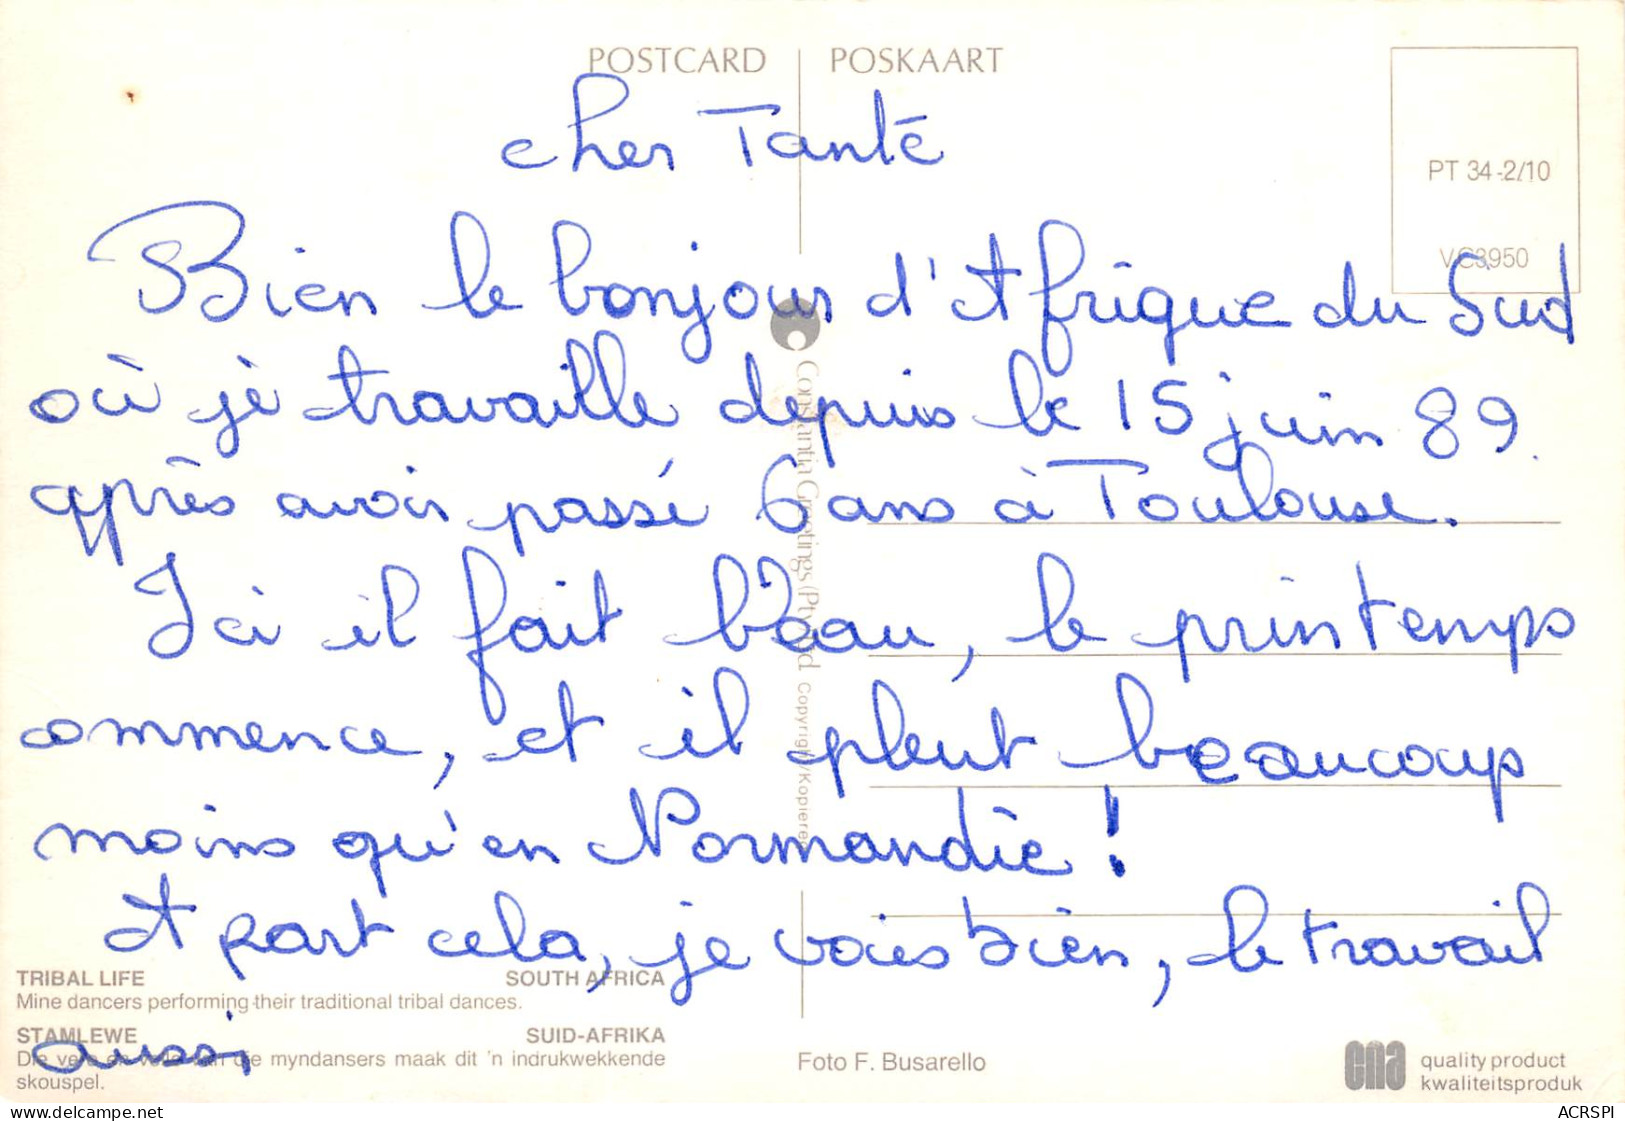 POSTCARD POSKAART
PT 34-2/10
VC3950
cher Tante
Bien le bonjour d'Afrique du Sud
où je travaille depuis le 15 juin 89.
après avoir passé 6 ans à Toulouse.
Ici il fait beau, le printemps
commence, et il pleut beaucoup
moins qu'en Normandie !
A part cela, je vais bien, le travail
aussi
Constantia Greetings (Pty) Ltd. Copyright/Kopiereg
TRIBAL LIFE SOUTH AFRICA
Mine dancers performing their traditional tribal dances.
STAMLEWE SUID-AFRIKA
Die vere en velle van die myndansers maak dit 'n indrukwekkende
skouspel.
Foto F. Busarello
cna quality product
kwaliteitsproduk
www.delcampe.net
ACRSPI